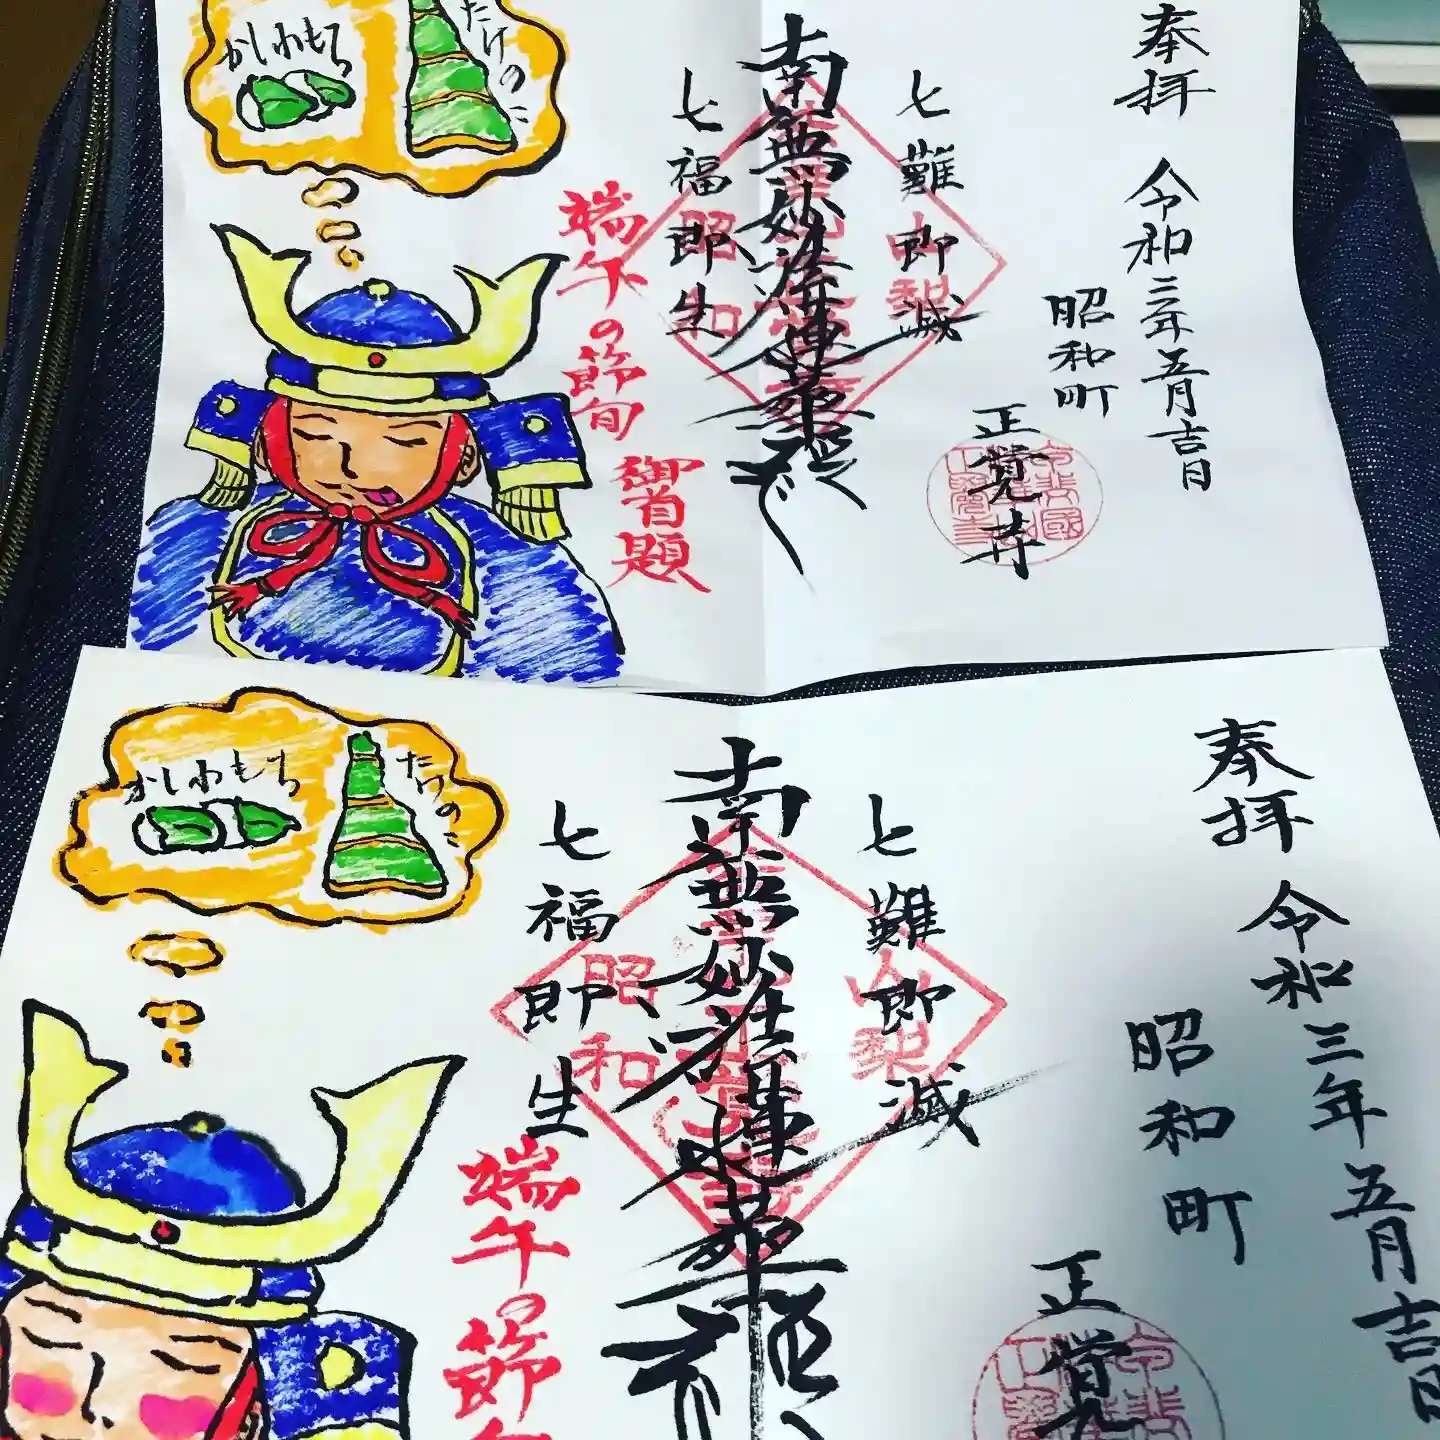 奉拝
令和三年五月吉日
昭和町
正覚寺
七難即滅
南無妙法蓮華経
七福即生
端午の節旬
御首題
たけのこ
かしわもち
昭和
山梨
奉拝
令和三年五月吉日
昭和町
正覚
七難即滅
南無妙法蓮華経
七福即生
端午の節
たけのこ
かしわもち
昭和
山梨